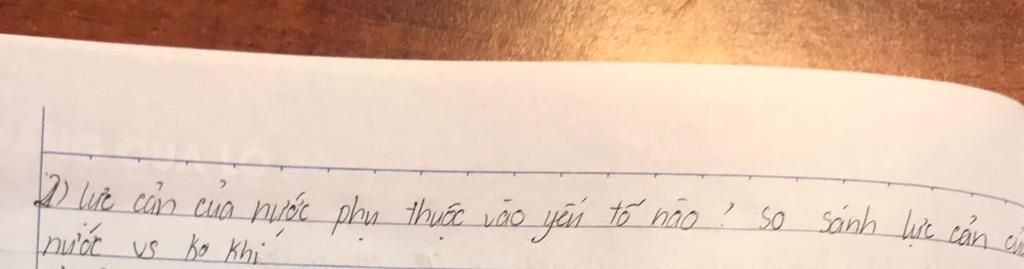 2) lực cản của nước phụ thuộc vào yếu tố nào? so sánh lực cản củ
nước vs ko khí